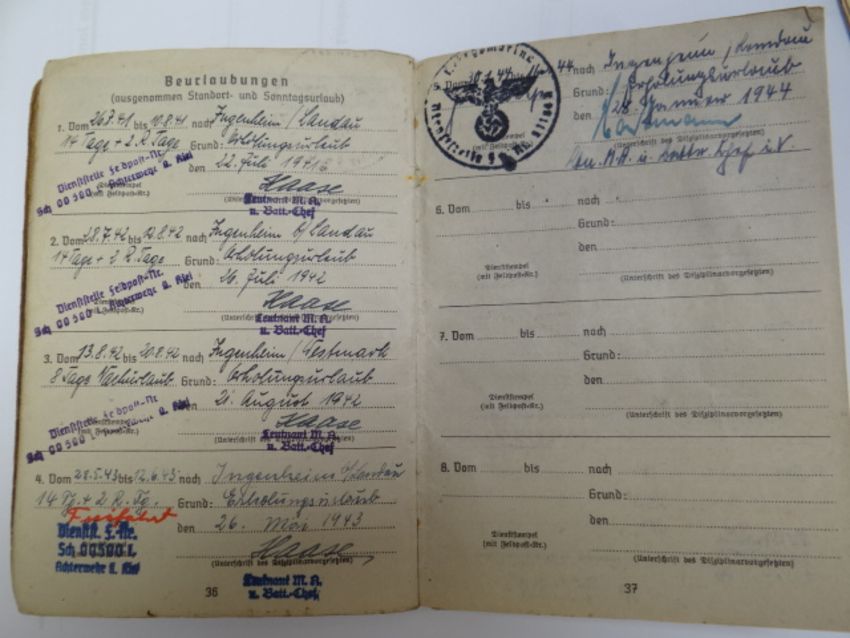 Beurlaubungen
(ausgenommen Standort- und Sonntagsurlaub)
1. Vom 26.7.41 bis 10.8.41 nach Ingenheim / Landau
14 Tage + 2 R. Tage Grund: Erholungsurlaub
den 22. Juli 1941
Dienststelle Feldpost-Nr.
Sch 00500 L Achterwehr ü. Kiel
Haase
Leutnant M. A.
u. Batt.-Chef
2. Vom 28.7.42 bis 12.8.42 nach Ingenheim b/Landau
14 Tage + 2 R. Tage Grund: Erholungsurlaub
den 26. Juli 1942
Dienststelle Feldpost-Nr.
Sch 00500 L Achterwehr ü. Kiel
Haase
(Unterschrift des Disziplinarvorgesetzten)
Leutnant M. A.
u. Batt.-Chef
3. Vom 13.8.42 bis 20.8.42 nach Ingenheim / Westmark
8 Tage Nachurlaub Grund: Erholungsurlaub
den 21. August 1942
Dienststelle Feldpost-Nr.
Sch 00500 L Achterwehr ü. Kiel
Haase
Leutnant M. A.
u. Batt.-Chef
4. Vom 28.5.43 bis 12.6.43 nach Ingenheim b/Landau
14 Tg. + 2 R. Tg. Grund: Erholungsurlaub
den 26. Mai 1943
Dienstst. F.-Nr.
Sch 00500 L
Achterwehr ü. Kiel
Haase
(Unterschrift des Disziplinarvorgesetzten)
Leutnant M. A.
u. Batt.-Chef
36
5. Vom 44 nach Ingenheim / Landau
Grund: Erholungsurlaub
28. Januar 1944
(Unterschrift des Disziplinarvorgesetzten)
6. Vom bis nach
Grund:
den
Dienststempel
(mit Feldpost-Nr.)
(Unterschrift des Disziplinarvorgesetzten)
7. Vom bis nach
Grund:
den
Dienststempel
(mit Feldpost-Nr.)
(Unterschrift des Disziplinarvorgesetzten)
8. Vom bis nach
Grund:
den
Dienststempel
(mit Feldpost-Nr.)
(Unterschrift des Disziplinarvorgesetzten)
37